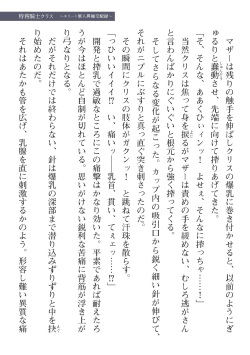 マザーは残りの触手を伸ばしクリスの爆乳に巻き付かせると、以前のようにぎ
ゅるりと蠢動させ、先端に向けて搾りあげてきた。
「そ、そんな、ああくひィンッ！　よせえ、そんなに搾っちゃ……！」
当然クリスは焦って身を捩るがマザーは責めの手を緩めない。むしろ逃がさん
と言わんばかりにぐいぐいと根元から強く搾ってくる。
そしてさらなる変化が起こった。カップ内の吸引口から鋭く細い針が伸びて、
それがニプルにぷすりと真っ直ぐ突き刺さったのだ。
その瞬間にクリスの肢体がガクンッ！　と跳ねて汗珠を散らす。
っひぃいイイ!?　い、痛い……乳首、貫いて、てぇェッ……!?」
開発と搾乳で過敏なところにこの衝撃はかなり効いた。平素であれば耐えたろ
うが今はほとんど自制が切れている。思いがけない鋭利な苦痛に背筋が浮き上が
り弓なりとなる。
だがそれだけでは終わらない、針は爆乳の深部まで潜り込みずりずりと中を抉
り始めたのだ。
それはあたかも管を広げ、乳腺を直に刺激するかのよう。形容し難い異質な痛